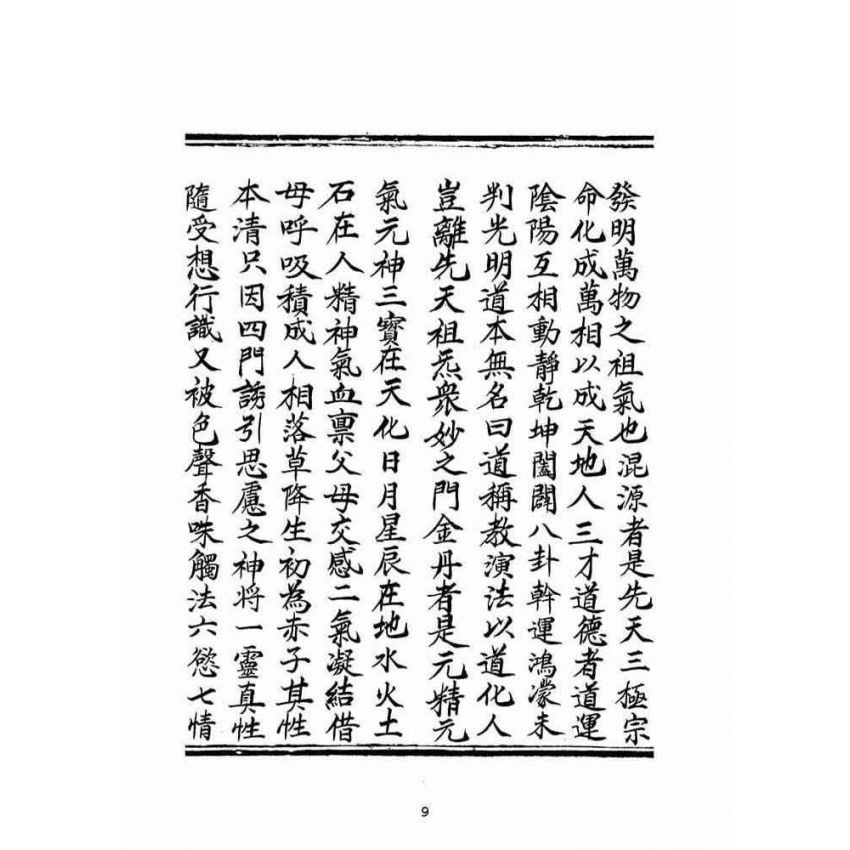 發明萬物之祖氣也混源者是先天三極宗
命化成萬相以成天地人三才道德者道運
陰陽互相動靜乾坤闔闢八卦幹運鴻濛未
判光明道本無名曰道稱教演法以道化人
豈離先天祖炁衆妙之門金丹者是元精元
氣元神三寶在天化日月星辰在地水火土
石在人精神氣血禀父母交感二氣凝結借
母呼吸積成人相落草降生初為赤子其性
本清只因四門誘引思慮之神將一靈真性
隨受想行識又被色聲香味觸法六慾七情
9